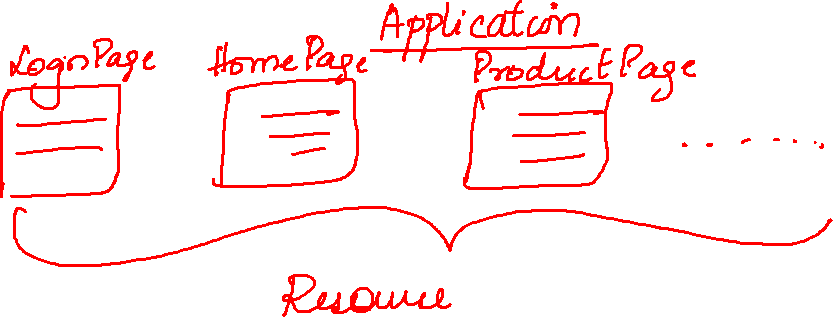 Application
LoginPage HomePage ProductPage
Resource